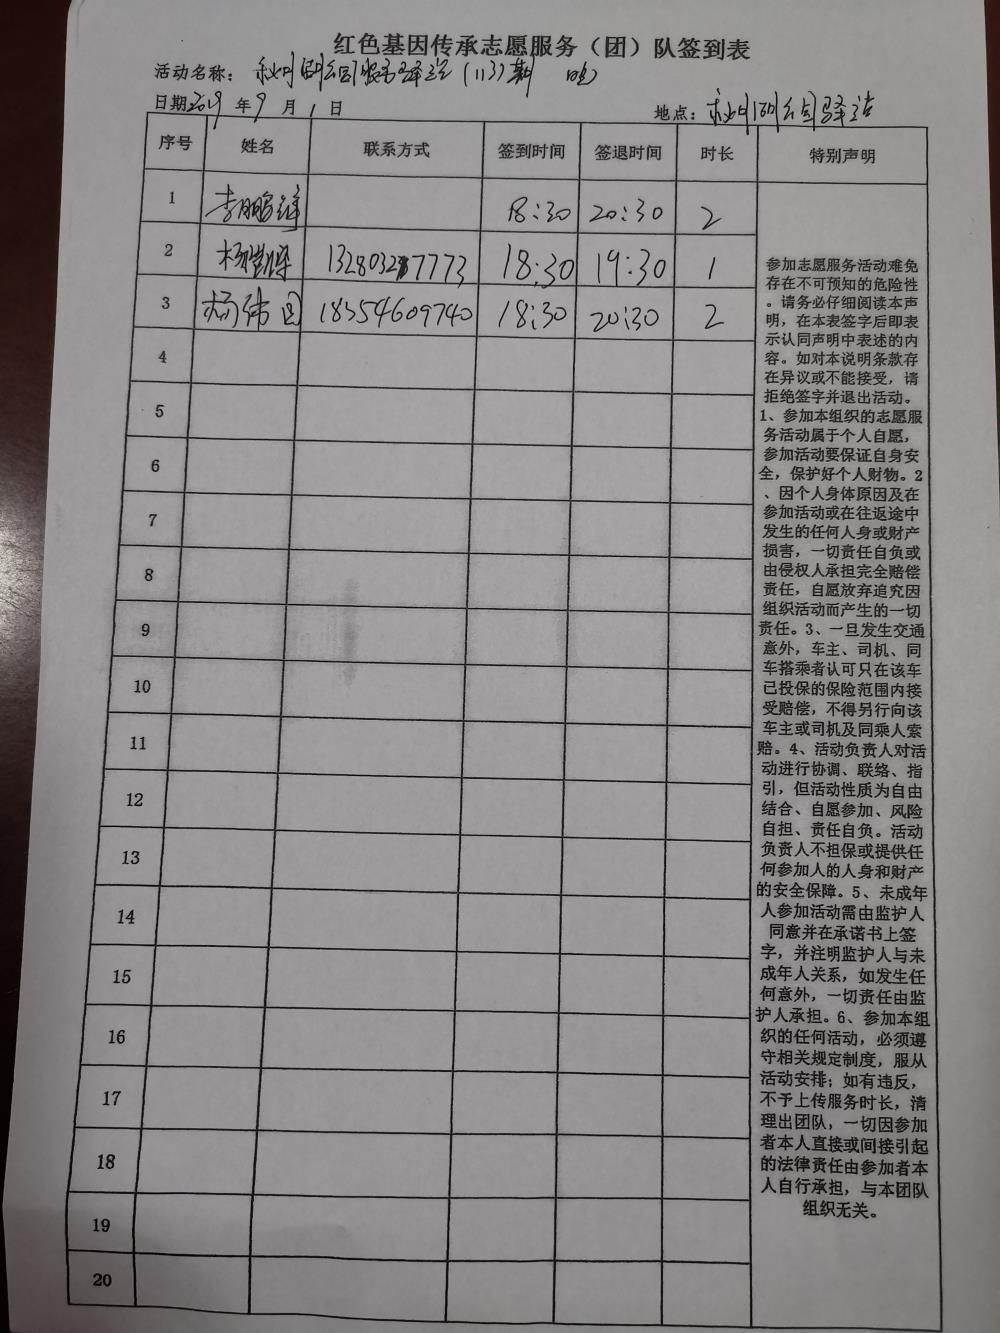 红色基因传承志愿服务（团）队签到表
活动名称： （113）期
日期2019年9月1日 地点：
序号 姓名 联系方式 签到时间 签退时间 时长 特别声明
1 18:30 20:30 2
2 18:30 19:30 1
3 杨伟国 18554609740 18:30 20:30 2
4
5
6
7
8
9
10
11
12
13
14
15
16
17
18
19
20
参加志愿服务活动难免
存在不可预知的危险性
。请务必仔细阅读本声
明，在本表签字后即表
示认同声明中表述的内
容。如对本说明条款存
在异议或不能接受，请
拒绝签字并退出活动。
1、参加本组织的志愿服
务活动属于个人自愿，
参加活动要保证自身安
全，保护好个人财物。2
、因个人身体原因及在
参加活动或在往返途中
发生的任何人身或财产
损害，一切责任自负或
由侵权人承担完全赔偿
责任，自愿放弃追究因
组织活动而产生的一切
责任。3、一旦发生交通
意外，车主、司机、同
车搭乘者认可只在该车
已投保的保险范围内接
受赔偿，不得另行向该
车主或司机及同乘人索
赔。4、活动负责人对活
动进行协调、联络、指
引，但活动性质为自由
结合、自愿参加、风险
自担、责任自负。活动
负责人不担保或提供任
何参加人的人身和财产
的安全保障。5、未成年
人参加活动需由监护人
同意并在承诺书上签
字，并注明监护人与未
成年人关系，如发生任
何意外，一切责任由监
护人承担。6、参加本组
织的任何活动，必须遵
守相关规定制度，服从
活动安排；如有违反，
不予上传服务时长，清
理出团队，一切因参加
者本人直接或间接引起
的法律责任由参加者本
人自行承担，与本团队
组织无关。